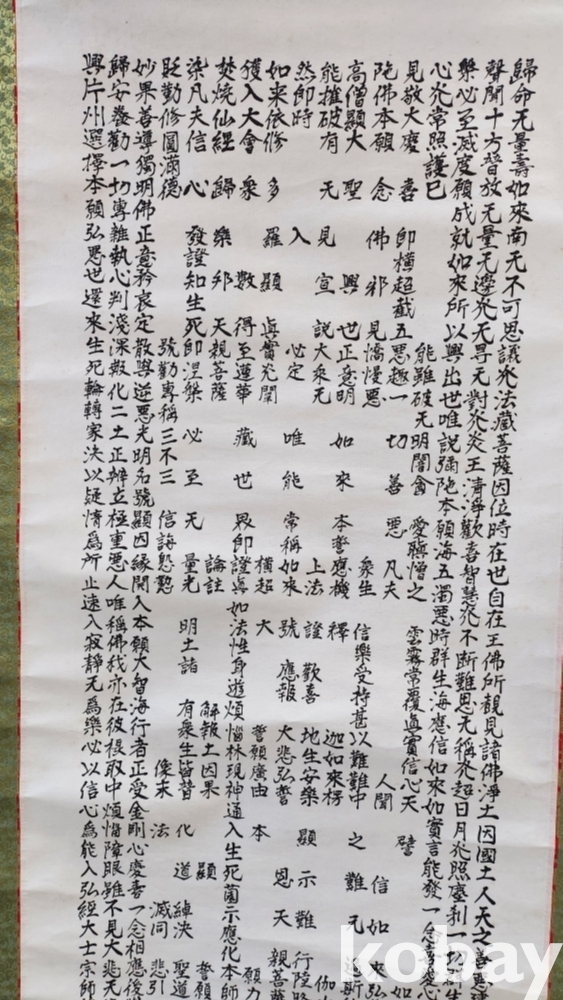 歸命无量壽如來南无不可思議光法藏菩薩因位時在世自在王佛所覩見諸佛淨土因國土人天之善惡
聲聞十方普放无量无邊光无㝵无對光炎王清淨歡喜智慧光不断難思无稱光超日月光照塵刹一切群生
樂必至滅度願成就如來所以興出世唯説彌陀本願海五濁惡時群生海應信如來如實言能發一念喜愛心
心光常照護已能雖破无明闇貪愛瞋憎之雲霧常覆真實信心天譬如
見敬大慶喜即横超截五惡趣一切善惡凡夫人聞信如來弘
陀佛本願念佛邪見憍慢惡衆生信樂受持甚以難難中之難无過斯
高僧顯大聖興世正意明如來本誓應機釋迦如來楞伽
能摧破有无見宣説大乘无上法證歡喜地生安樂顯示難行陸路
然即時入必定唯能常稱如來號應報大悲弘誓恩天親菩薩
如來依修多羅顯真實光闡横超大誓願廣由本願力
獲入大會衆數得至蓮華藏世界即證真如法性身遊煩惱林現神通入生死薗示應化本師
焚燒仙經歸樂邦天親菩薩論註解報土因果顯誓願
染凡夫信心發證知生死即涅槃必至无量光明土諸有衆生皆普化道綽決聖道
貶勤修圓滿德號勸專稱三不三信誨慇懃像末法滅同悲引
妙果善導獨明佛正意矜哀定散與逆惡光明名號顯因縁開入本願大智海行者正受金剛心慶喜一念相應後
歸安養勸一切專雜執心判淺深報化二土正辨立極重惡人唯稱佛我亦在彼攝取中煩惱障眼雖不見大悲无
興片州選擇本願弘惡世還來生死輪轉家決以疑情爲所止速入寂靜无爲樂必以信心爲能入弘經大士宗師
kobay